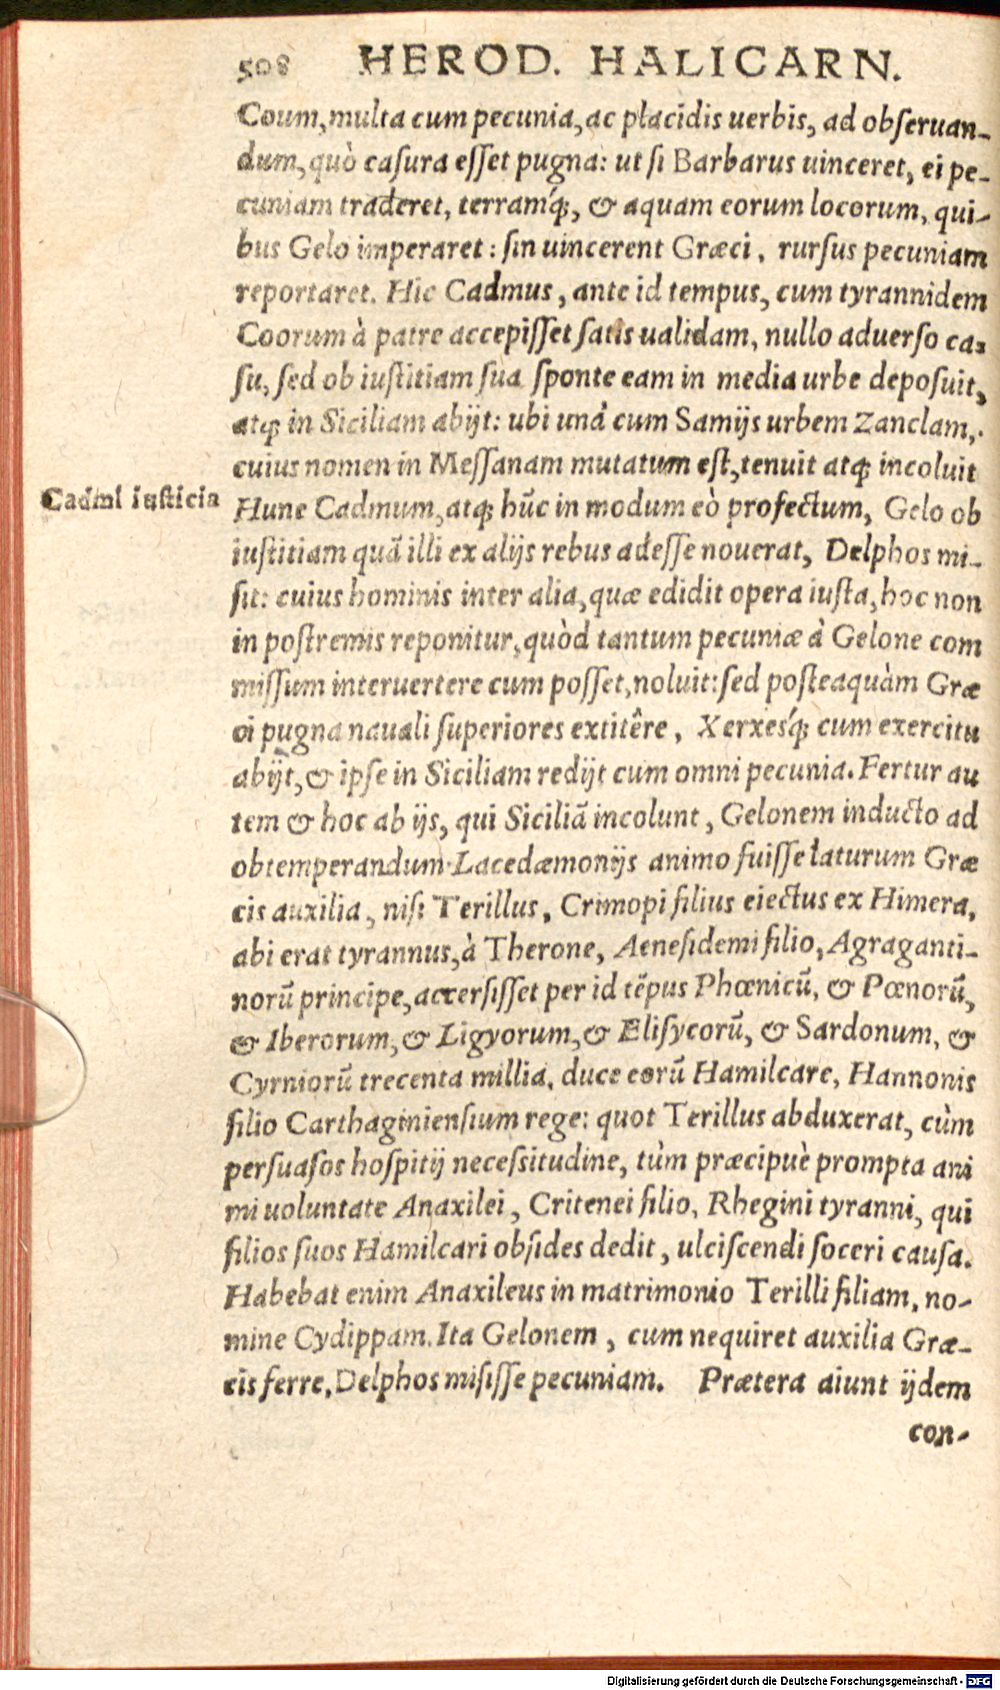 508 HEROD. HALICARN.
Coum, multa cum pecunia, ac placidis uerbis, ad obſeruan-
dum, quò caſura eſſet pugna: ut ſi Barbarus uinceret, ei pe-
cuniam traderet, terramq́;, & aquam eorum locorum, qui-
bus Gelo imperaret: ſin uincerent Græci, rurſus pecuniam
reportaret. Hic Cadmus, ante id tempus, cum tyrannidem
Coorum à patre accepiſſet ſatis ualidam, nullo aduerſo ca-
ſu, ſed ob iuſtitiam ſua ſponte eam in media urbe depoſuit,
atq; in Siciliam abijt: ubi unà cum Samijs urbem Zanclam,
cuius nomen in Meſſanam mutatum eſt, tenuit atq; incoluit
Cadmi iuſticia
Hunc Cadmum, atq; hũc in modum eò profectum, Gelo ob
iuſtitiam quã illi ex alijs rebus adeſſe nouerat, Delphos mi-
ſit: cuius hominis inter alia, quæ edidit opera iuſta, hoc non
in poſtremis reponitur, quòd tantum pecuniæ à Gelone com
miſſum interuertere cum poſſet, noluit: ſed poſteaquàm Græ
ci pugna nauali ſuperiores extitêre, Xerxesq́; cum exercitu
abijt, & ipſe in Siciliam redijt cum omni pecunia. Fertur au
tem & hoc ab ijs, qui Siciliã incolunt, Gelonem inducto ad
obtemperandum Lacedæmonijs animo fuiſſe laturum Græ
cis auxilia, niſi Terillus, Crinopi filius eiectus ex Himera,
abi erat tyrannus, à Therone, Aeneſidemi filio, Agraganti-
norũ principe, accerſiſſet per id tẽpus Phœnicũ, & Pœnorũ,
& Iberorum, & Ligyorum, & Eliſycorũ, & Sardonum, &
Cyrniorũ trecenta millia, duce eorũ Hamilcare, Hannonis
filio Carthaginienſium rege: quot Terillus abduxerat, cùm
perſuaſos hoſpitij neceſsitudine, tùm præcipuè prompta ani
mi uoluntate Anaxilei, Critenei filio, Rhegini tyranni, qui
filios ſuos Hamilcari obſides dedit, ulciſcendi ſoceri cauſa.
Habebat enim Anaxileus in matrimonio Terilli filiam, no-
mine Cydippam. Ita Gelonem, cum nequiret auxilia Græ-
cis ferre, Delphos miſiſſe pecuniam. Prætera aiunt ijdem
con-
Digitalisierung gefördert durch die Deutsche Forschungsgemeinschaft - DFG